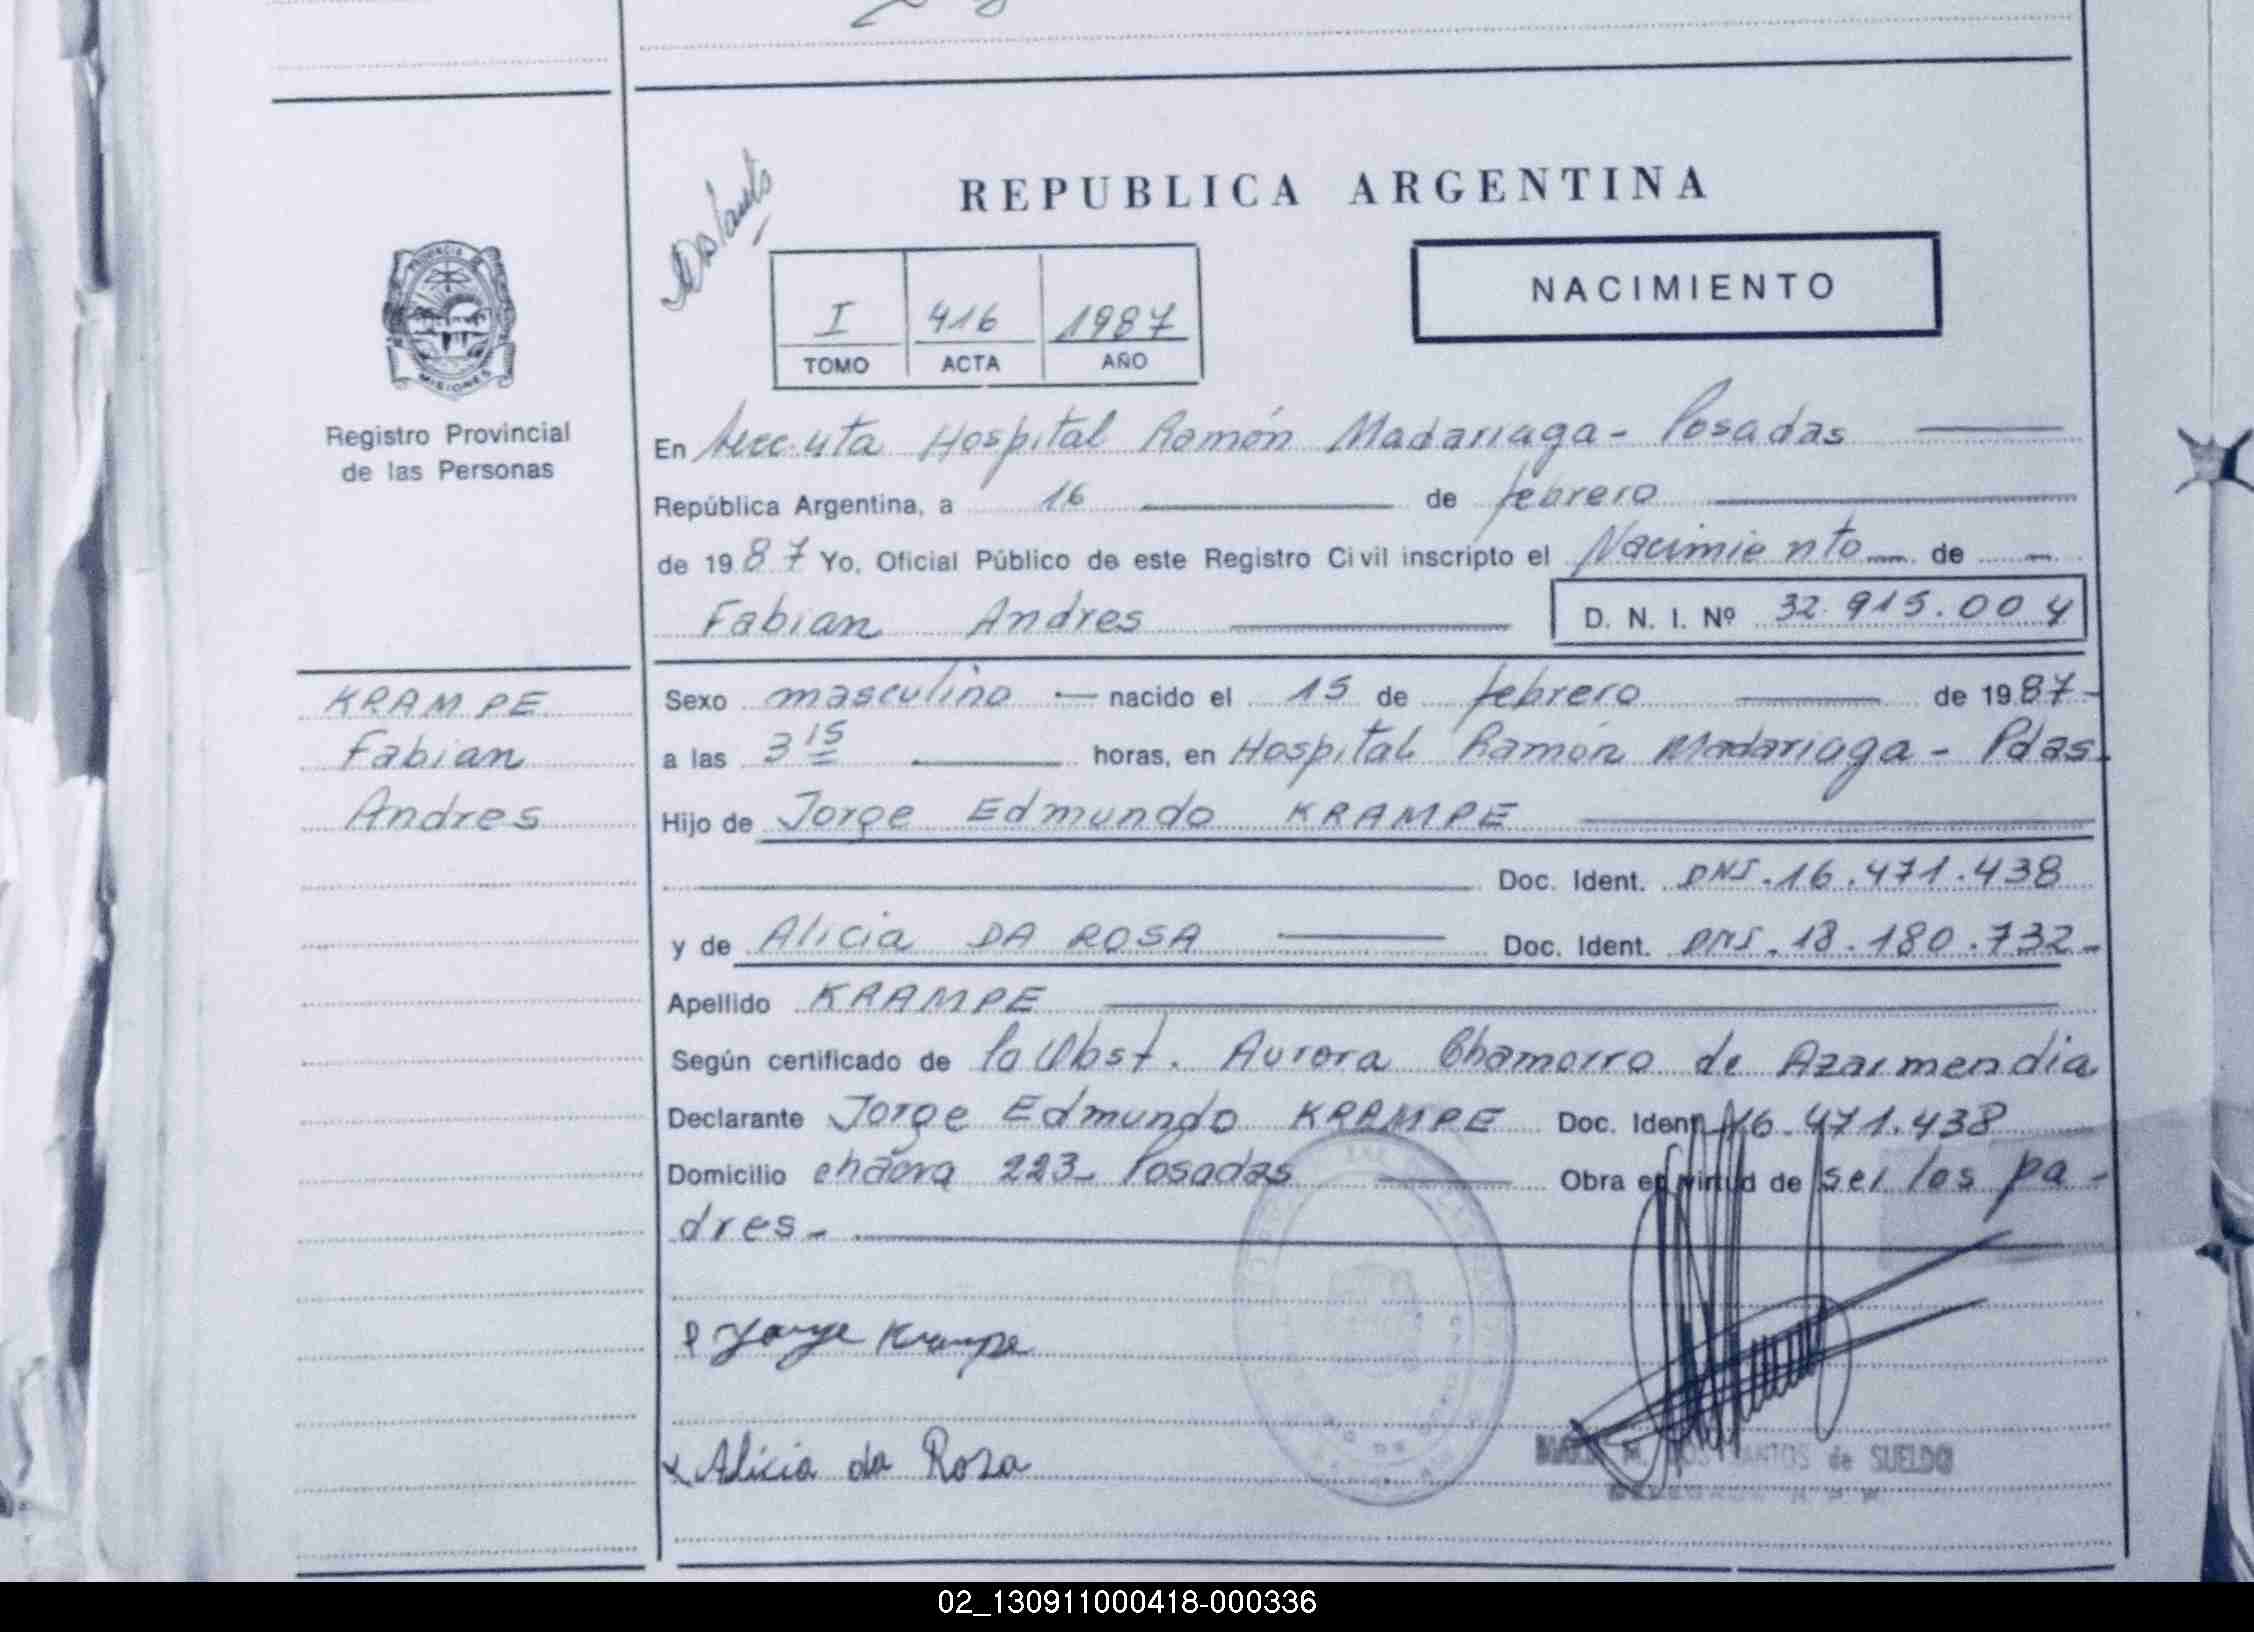 REPUBLICA ARGENTINA
NACIMIENTO
I 416 1987
TOMO ACTA AÑO
PROVINCIA DE
MISIONES
Registro Provincial
de las Personas
En Hospital Ramón Madariaga - Posadas
República Argentina, a 16 de febrero
de 1987 Yo, Oficial Público de este Registro Civil inscripto el Nacimiento de
Fabian Andres D. N. I. Nº 32.915.004
KRAMPE
Fabian
Andres
Sexo masculino nacido el 15 de febrero de 1987-
a las 3 15 horas, en Hospital Ramón Madariaga - Pdas.
Hijo de Jorge Edmundo KRAMPE
Doc. Ident. DNI.16.471.438
y de Alicia DA ROSA Doc. Ident. DNI.18.180.732-
Apellido KRAMPE
Según certificado de la Obst. Aurora Chamorro de Azarmendia
Declarante Jorge Edmundo KRAMPE Doc. Ident. 16.471.438
Domicilio chacra 223- Posadas Obra en virtud de ser los pa-
dres-
Jorge Krampe
x Alicia da Rosa
M. DOS SANTOS de SUELDO
02_130911000418-000336